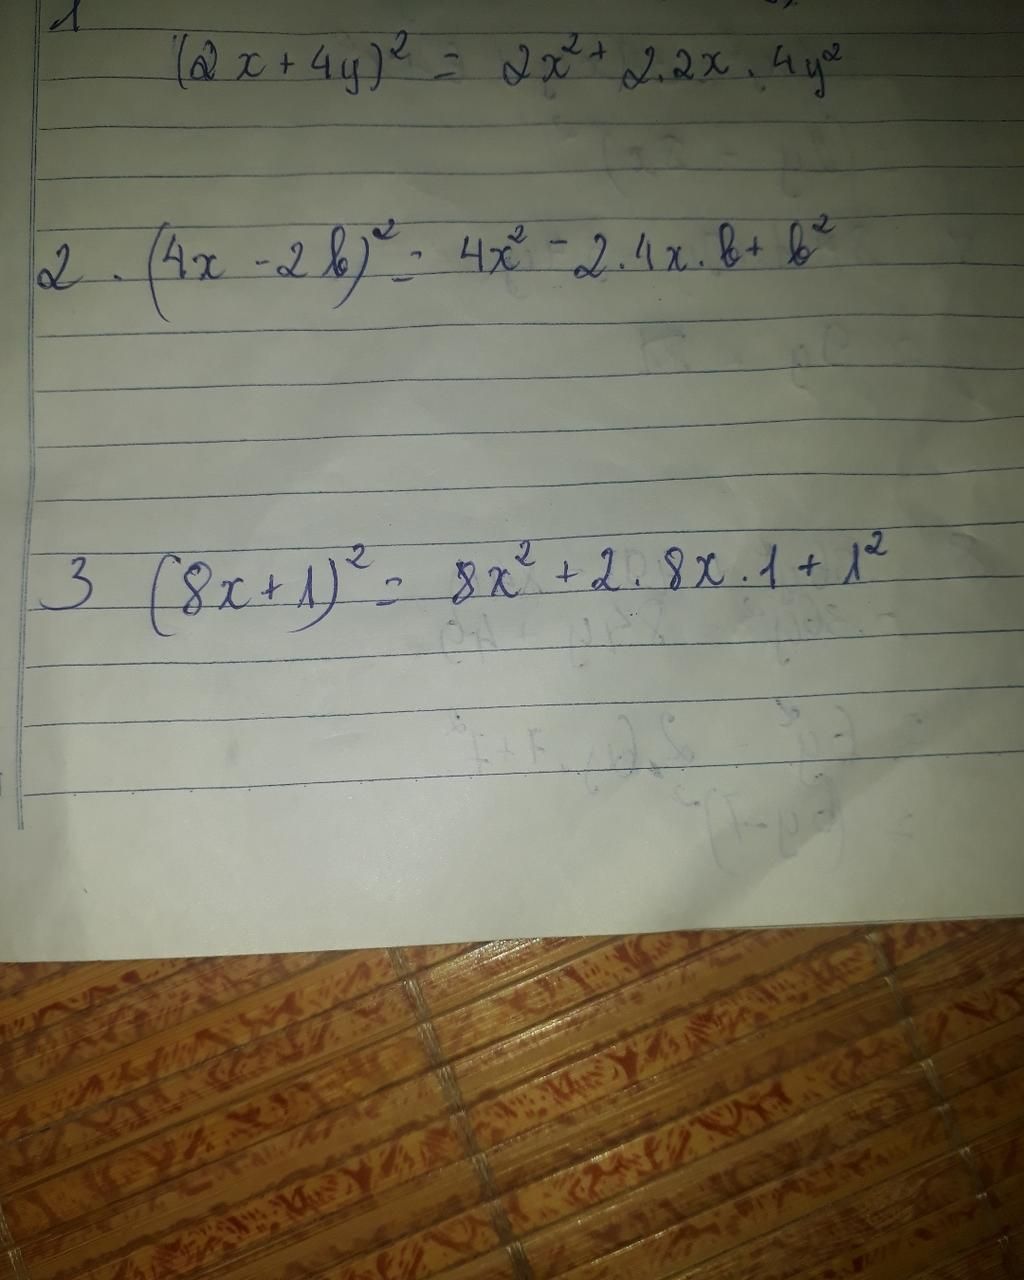 1
(2x+4y)² = 2x² + 2.2x.4y²
2. (4x-2b)² = 4x² - 2.4x.b+b²
3 (8x+1)² = 8x² + 2.8x.1+1²